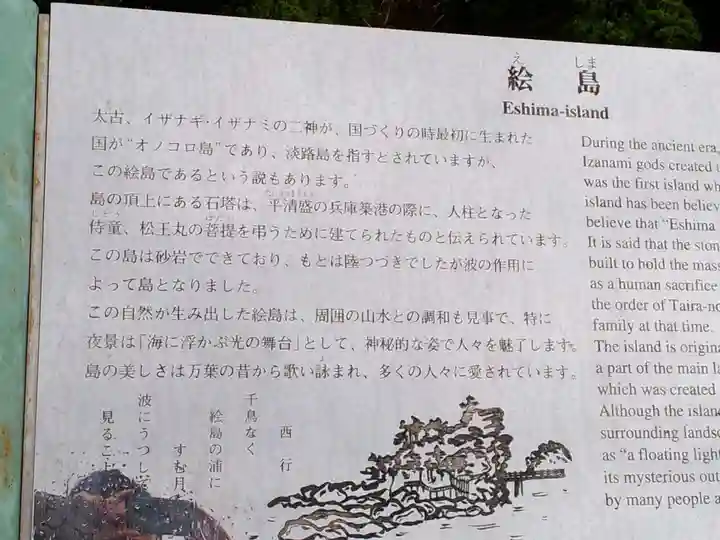 絵島
えしま
Eshima-island
太古、イザナギ・イザナミの二神が、国づくりの時最初に生まれた
国が“オノコロ島”であり、淡路島を指すとされていますが、
この絵島であるという説もあります。
島の頂上にある石塔は、平清盛の兵庫築港の際に、人柱となった
侍童、松王丸の菩提を弔うために建てられたものと伝えられています。
この島は砂岩でできており、もとは陸つづきでしたが波の作用に
よって島となりました。
この自然が生み出した絵島は、周囲の山水との調和も見事で、特に
夜景は「海に浮かぶ光の舞台」として、神秘的な姿で人々を魅了します。
島の美しさは万葉の昔から歌い詠まれ、多くの人々に愛されています。
During the ancient era,
Izanami gods created
was the first island
island has been
believe that “Eshima
It is said that the
built to hold the
as a human sacrifice
the order of
family at that time.
The island is
a part of the main
which was created
Although the
surrounding
as “a floating
its mysterious
by many people
西行
千鳥なく
絵島の浦に
すむ月
波にうつして
見るこ